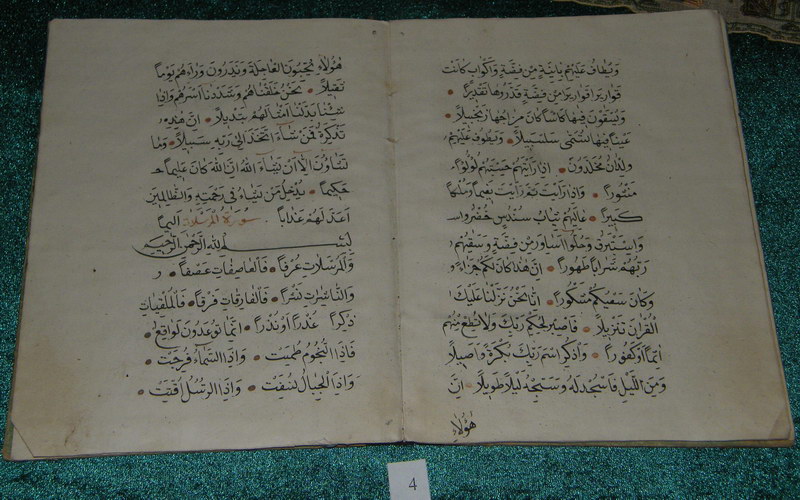 وَيُطَافُ عَلَيْهِمْ بِآنِيَةٍ مِنْ فِضَّةٍ وَأَكْوَابٍ كَانَتْ
قَوَارِيرَا قَوَارِيرَا مِنْ فِضَّةٍ قَدَّرُوهَا تَقْدِيرًا
وَيُسْقَوْنَ فِيهَا كَأْسًا كَانَ مِزَاجُهَا زَنْجَبِيلًا
عَيْنًا فِيهَا تُسَمَّى سَلْسَبِيلًا وَيَطُوفُ عَلَيْهِمْ
وِلْدَانٌ مُخَلَّدُونَ إِذَا رَأَيْتَهُمْ حَسِبْتَهُمْ لُؤْلُؤًا
مَنْثُورًا وَإِذَا رَأَيْتَ ثَمَّ رَأَيْتَ نَعِيمًا وَمُلْكًا
كَبِيرًا عَالِيَهُمْ ثِيَابُ سُنْدُسٍ خُضْرٌ وَ
وَإِسْتَبْرَقٌ وَحُلُّوا أَسَاوِرَ مِنْ فِضَّةٍ وَسَقَاهُمْ
رَبُّهُمْ شَرَابًا طَهُورًا إِنَّ هَذَا كَانَ لَكُمْ جَزَاءً وَ
وَكَانَ سَعْيُكُمْ مَشْكُورًا إِنَّا نَحْنُ نَزَّلْنَا عَلَيْكَ
الْقُرْآنَ تَنْزِيلًا فَاصْبِرْ لِحُكْمِ رَبِّكَ وَلَا تُطِعْ مِنْهُمْ
آثِمًا أَوْ كَفُورًا وَاذْكُرِ اسْمَ رَبِّكَ بُكْرَةً وَأَصِيلًا
وَمِنَ اللَّيْلِ فَاسْجُدْ لَهُ وَسَبِّحْهُ لَيْلًا طَوِيلًا إِنَّ
هَؤُلَاءِ
هَؤُلَاءِ يُحِبُّونَ الْعَاجِلَةَ وَيَذَرُونَ وَرَاءَهُمْ يَوْمًا
ثَقِيلًا نَحْنُ خَلَقْنَاهُمْ وَشَدَدْنَا أَسْرَهُمْ وَإِذَا
شِئْنَا بَدَّلْنَا أَمْثَالَهُمْ تَبْدِيلًا إِنَّ هَذِهِ
تَذْكِرَةٌ فَمَنْ شَاءَ اتَّخَذَ إِلَى رَبِّهِ سَبِيلًا وَمَا
تَشَاؤُنَ إِلَّا أَنْ يَشَاءَ اللَّهُ إِنَّ اللَّهَ كَانَ عَلِيمًا حَ
حَكِيمًا يُدْخِلُ مَنْ يَشَاءُ فِي رَحْمَتِهِ وَالظَّالِمِينَ
أَعَدَّ لَهُمْ عَذَابًا سورة المرسلات أَلِيمًا
بِسْمِ اللَّهِ الرَّحْمَنِ الرَّحِيمِ
وَالْمُرْسَلَاتِ عُرْفًا فَالْعَاصِفَاتِ عَصْفًا وَ
وَالنَّاشِرَاتِ نَشْرًا فَالْفَارِقَاتِ فَرْقًا فَالْمُلْقِيَاتِ
ذِكْرًا عُذْرًا أَوْ نُذْرًا إِنَّمَا تُوعَدُونَ لَوَاقِعٌ
فَإِذَا النُّجُومُ طُمِسَتْ وَإِذَا السَّمَاءُ فُرِجَتْ
وَإِذَا الْجِبَالُ نُسِفَتْ وَإِذَا الرُّسُلُ أُقِّتَتْ
4